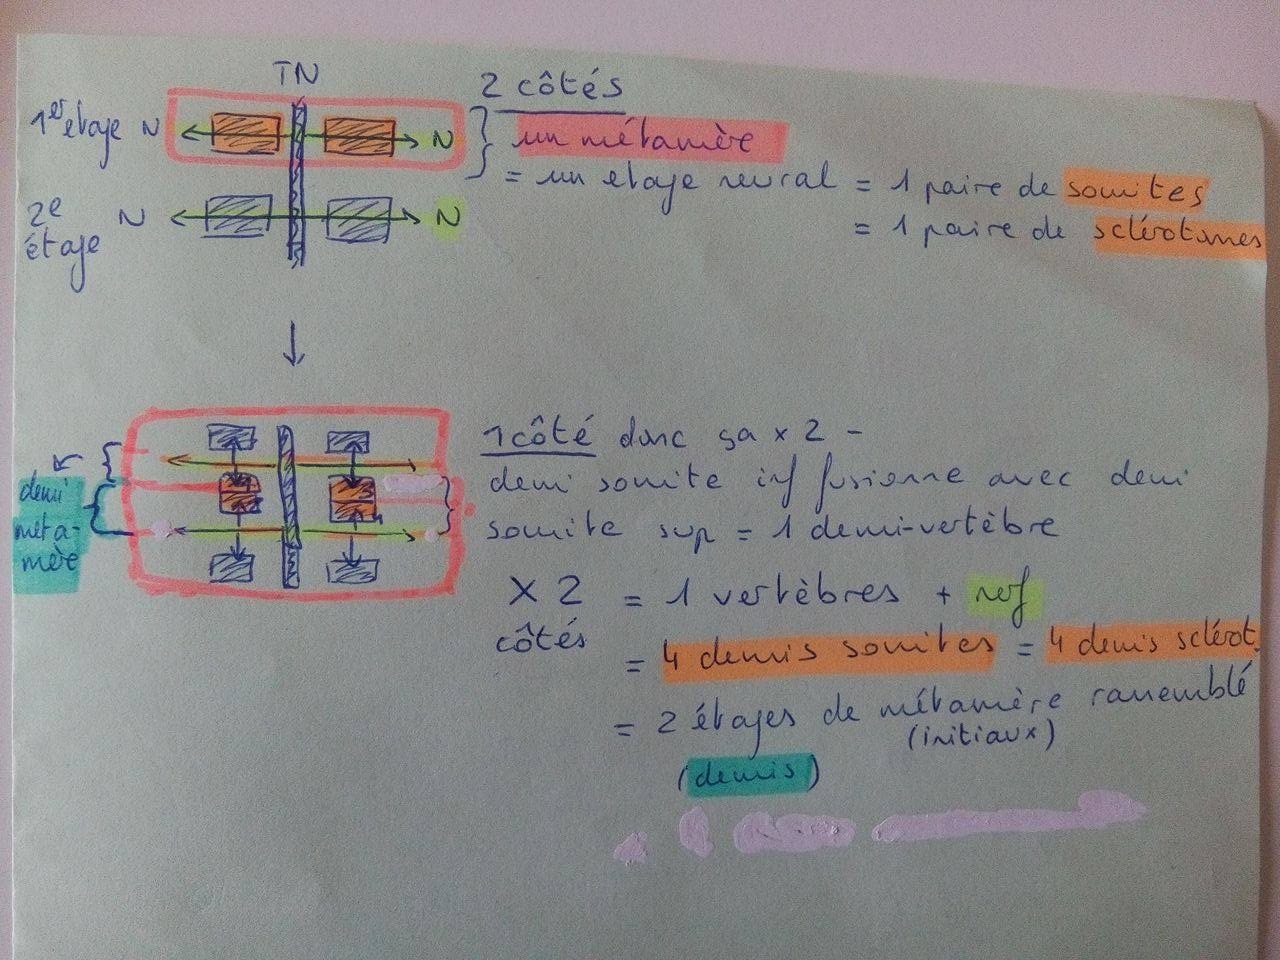 TN
1er etage N
N
2e étage N
N
2 côtés
un métamère
= un etage neural = 1 paire de somites
= 1 paire de sclérotomes
demi
méta-
mère
1 côté donc ça x 2 -
demi somite inf fusionne avec demi
somite sup = 1 demi-vertèbre
X 2 = 1 vertèbres + nerf
côtés
= 4 demis somites = 4 demis sclérot.
= 2 étages de métamère rassemblé
(initiaux)
(demis)